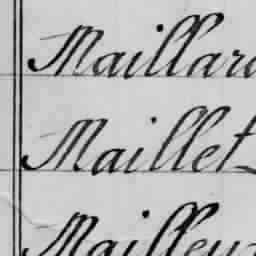 Maillard
Maillet
Mailleu